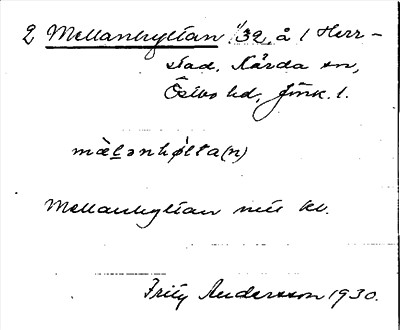 2 Mellanhyltan 1/32, å 1 Herr-
stad, Kärda sn,
Östbo hd, Jönk. l.
mälənhølta(n)
Mellanhyltan kl.
Fritz Andersson 1930.